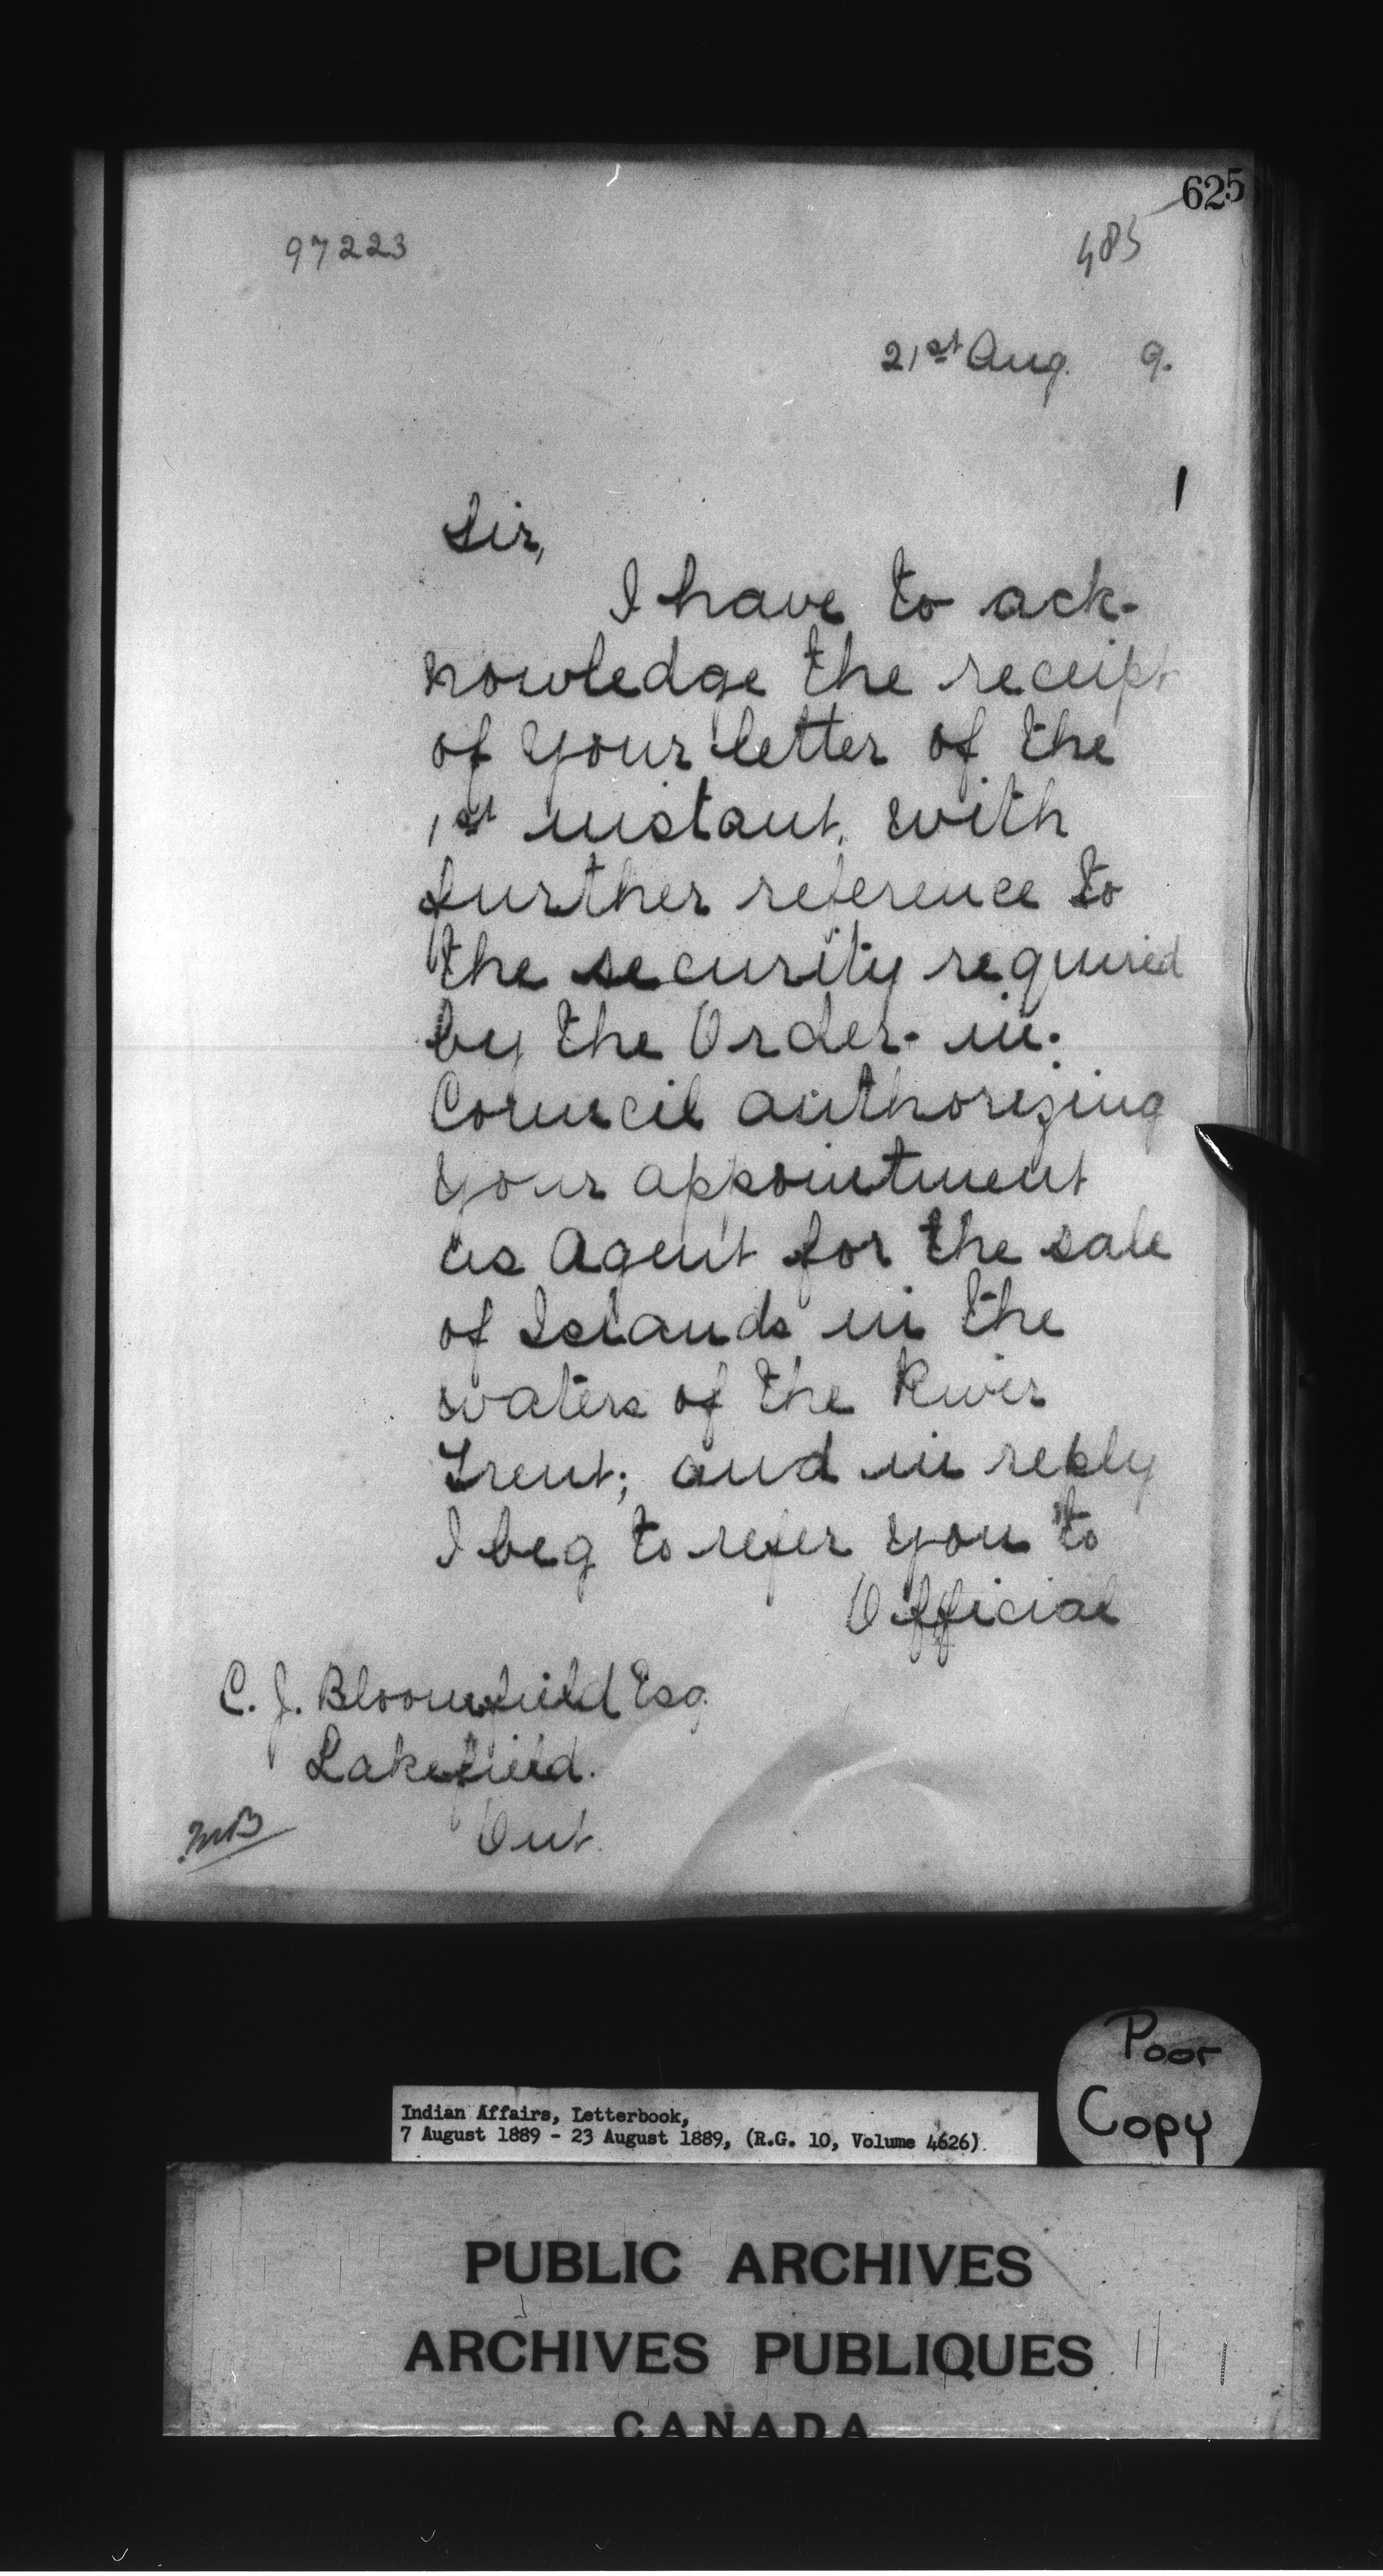 625
97223
485
21st Aug. 9.
Sir,
I have to ack-
nowledge the receipt
of your letter of the
1st instant, with
further reference to
the security required
by the Order-in-
Council authorizing
your appointment
as Agent for the sale
of Islands in the
waters of the River
Trent; and in reply
I beg to refer you to
Official
C. J. Bloomfield Esq.
Lakefield.
Ont.
MB
Poor
Copy
Indian Affairs, Letterbook,
7 August 1889 - 23 August 1889, (R.G. 10, Volume 4626)
PUBLIC ARCHIVES
ARCHIVES PUBLIQUES
CANADA